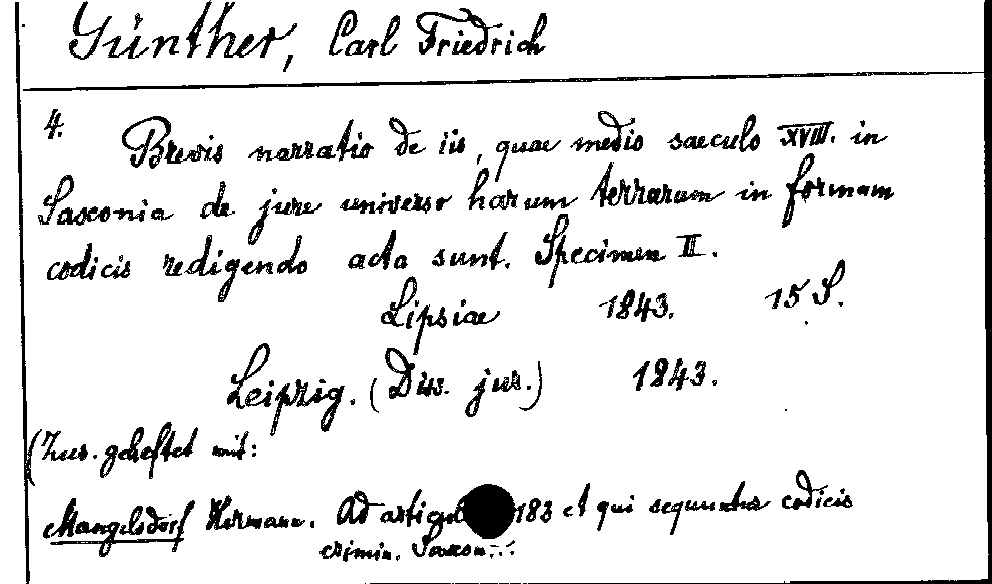 Günther, Carl Friedrich
4.
Brevis narratio de iis, quae medio saeculo XVIII. in
Sasconia de jure universo harum terrarum in formam
codicis redigendo acta sunt. Specimen II.
Lipsiae 1843. 15 S.
Leipzig. (Diss. jur.) 1843.
(Zus. geheftet mit:
Mangelsdorf Hermann. Ad 183 et qui sequuntur codicis
crimin.